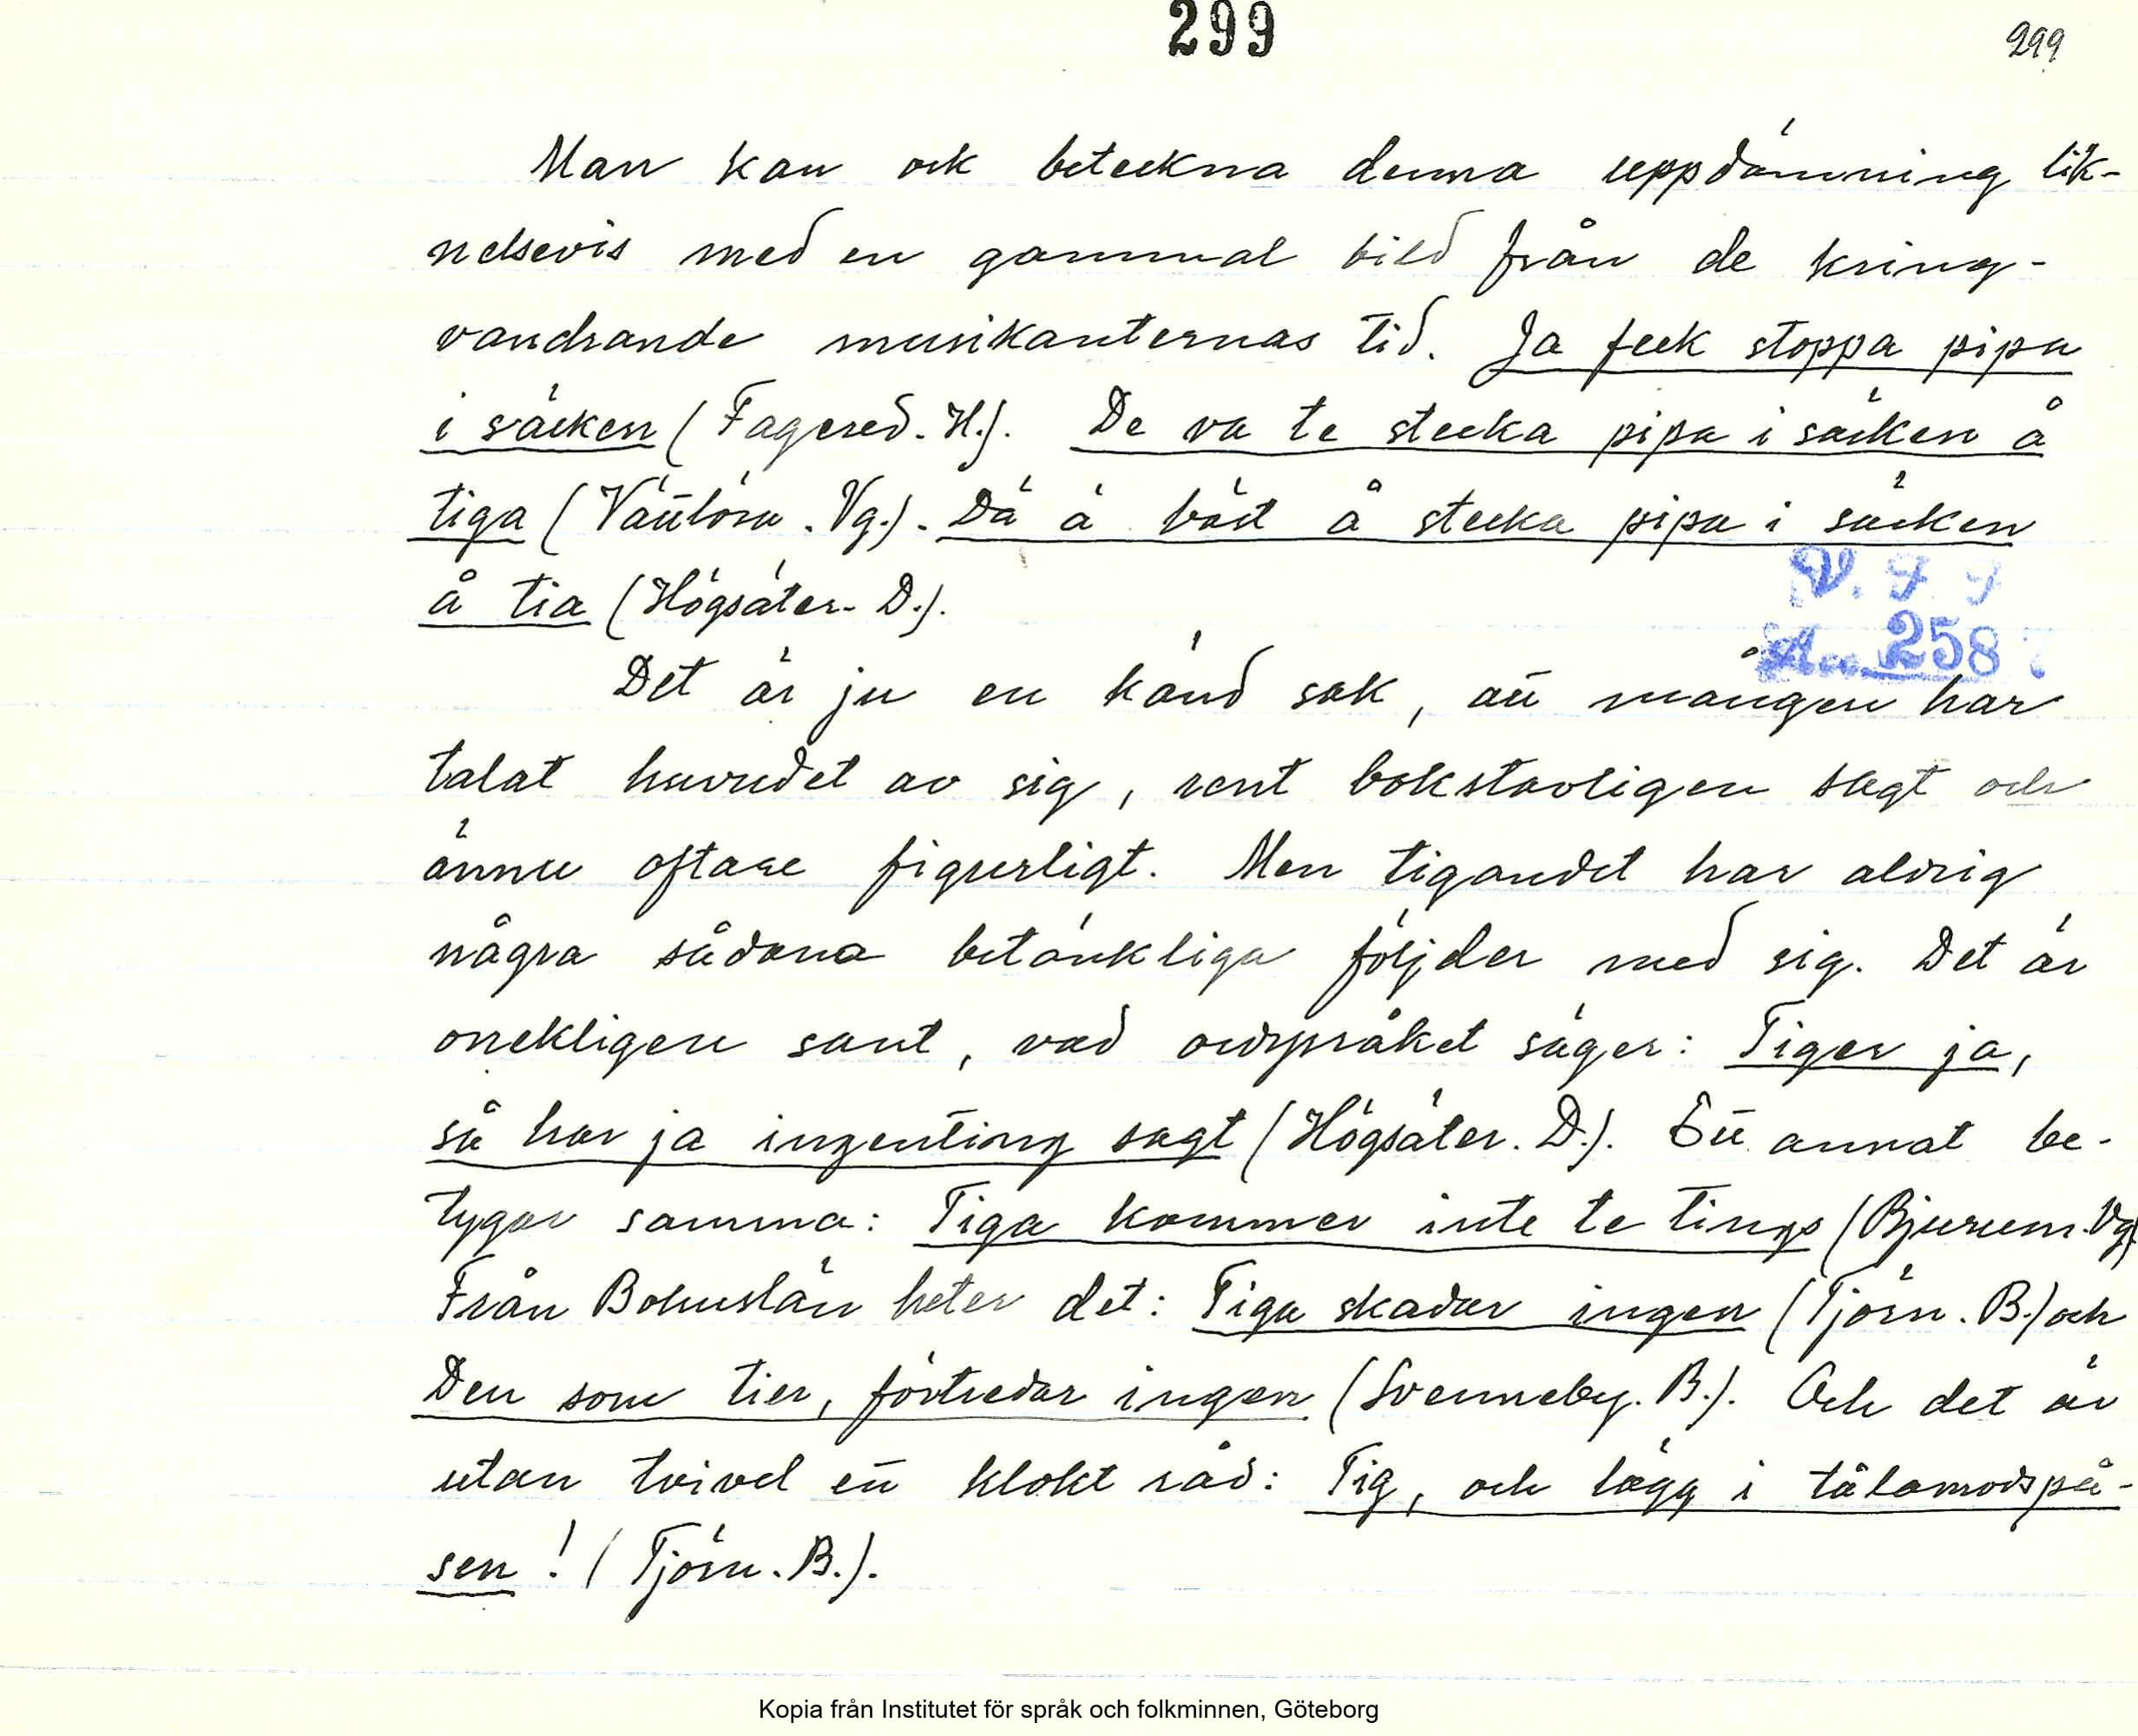 299
299
Man kan ock beteckna denna uppdämning lik-
nelsevis med en gammal bild från de kring-
vandrande musikanternas tid. Ja feck stoppa pipa
i säcken (Fagered. H.). De va te stecka pipa i säcken å
tiga (Vättlösa. Vg.). Dä ä bäst å stecka pipa i säcken
å tia (Högsäter. D.).
V. F. F
An. 258
Det är ju en känd sak, att mången har
talat huvudet av sig, rent bokstavligen sagt och
ännu oftare figurligt. Men tigandet har aldrig
några sådana betänkliga följder med sig. Det är
onekligen sant, vad ordspråket säger: Tiger ja,
så har ja ingenting sagt (Högsäter. D.). Ett annat be-
tygar samma: Tiga kommer inte te tings (Bjurum. Vg).
Från Bohuslän heter det: Tiga skadar ingen (Tjörn. B.) och
Den som tier, förtredar ingen (Svenneby. B.). Och det är
utan tvivel ett klokt råd: Tig, och lägg i tålamodspå-
sen! (Tjörn. B.).
Kopia från Institutet för språk och folkminnen, Göteborg